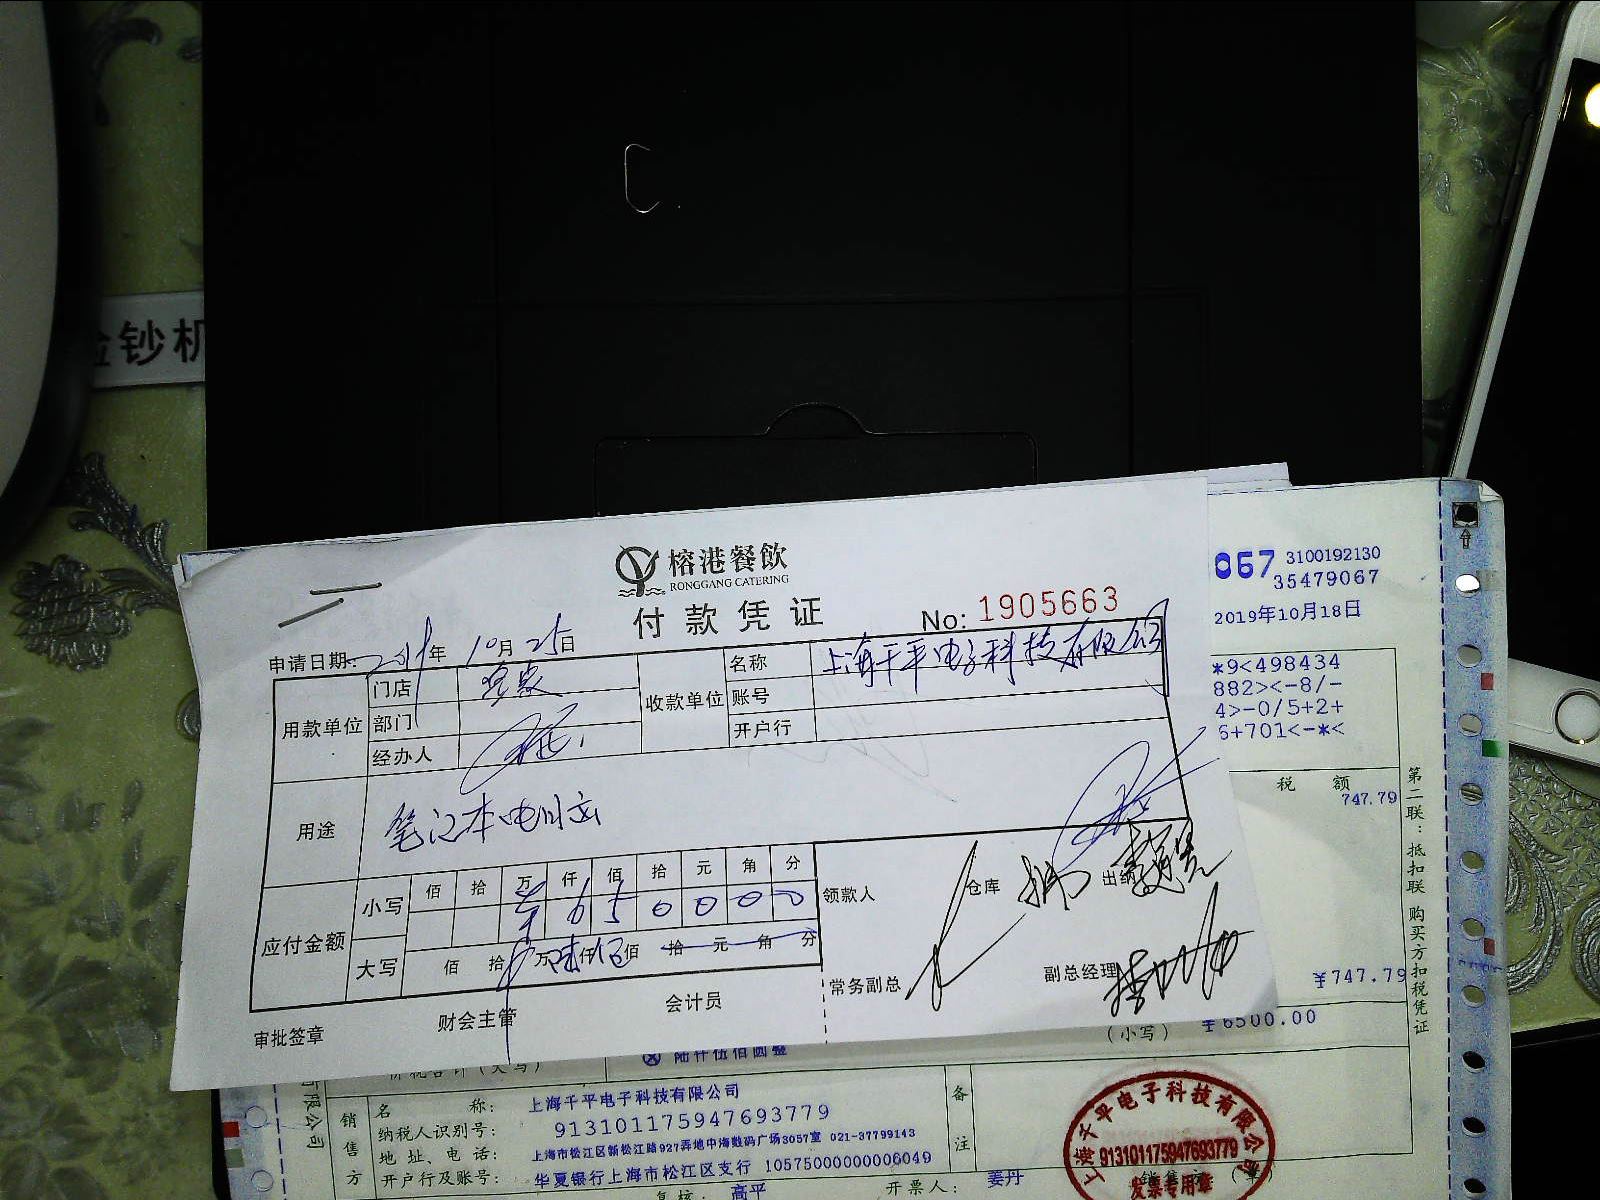 钞机
榕港餐飲
RONGGANG CATERING
付款凭证
No: 1905663
申请日期: 2019年 10月 25日
用款单位
门店
部门
经办人
收款单位
名称 上海千平电子科技有限公司
账号
开户行
用途 笔记本电脑
应付金额
小写
佰 拾 万 仟 佰 拾 元 角 分
¥ 6 5 0 0 0 0
大写
佰 拾 万 陆仟伍佰 拾 元 角 分
领款人 仓库 出纳
常务副总 副总经理
审批签章 财会主管 会计员
067 3100192130
35479067
2019年10月18日
*9<498434
882><-8/-
4>-0/5+2+
6+701<-*<
税 额
747.79
¥747.79
第二联:抵扣联 购买方扣税凭证
价税合计(大写) ⊗ 陆仟伍佰圆整 (小写) ¥6500.00
有限公司
销售方
名 称: 上海千平电子科技有限公司
纳税人识别号: 913101175947693779
地址、电话: 上海市松江区新松江路927弄地中海数码广场3057室 021-37799143
开户行及账号: 华夏银行上海市松江区支行 10575000000006049
备注
上海千平电子科技有限公司
913101175947693779
发票专用章
复核: 高平 开票人: 姜丹 销售方:(章)